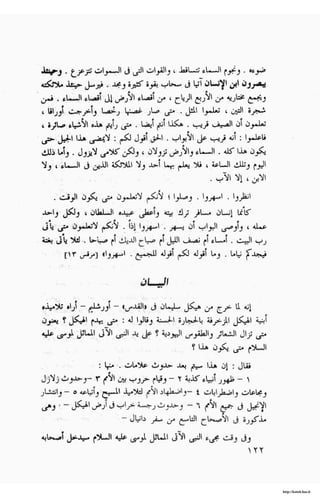 ضوءه . ونجوم السماء تتساقط ، والقوات التى فى السموات تتزعزع . وحينئذ
يبصرون ابن الإنسان آتيا فى سحاب بقوة كثيرة ومجد . فيرسل حينئذ ملائكته
ويجمع مختاريه من الأربع الرياح ، من أقصاء الأرض إلى أقصاء السماء . فمن
شجرة التين ، تعلموا المثل . متى صار غصنها رخصا وأخرجت أوراقا ،
تعلمون أن الصيف قريب . هكذا أنتم أيضا . متى رأيتم هذه الأشياء صائرة ،
فاعلموا : أنه قريب على الأبواب . الحق أقول لكم : لايمضى هذا الجيل حتى
يكون هذا كله . السماء والأرض تزولان ، ولكن كلامى لايزول . وأما ذلك
اليوم وتلك الساعة ، فلا يعلم بهما أحد ولا الملائكة الذين فى السماء ، ولا
الابن ، إلا الآب .
انظروا . اسهروا . وصلوا ؛ لأنكم لاتعلمون متى يكون الوقت .
كأنما إنسان مسافر ترك بيته وأعطى عبيده السلطان ، ولكل واحد
عمله ، وأوصى البواب أن يسهر . اسهروا إذاً . لأنكم لاتعلمون متى يأتى
رب البيت . أمساء أم نصف الليل أم صياح الديك أم صباحا . لئلا يأتى بغتة
فيجدكم نياما . وما أقوله لكم أقوله للجميع . اسهروا» [مرقس ١٣]
البيــان
إنه لما خرج من هيكل سليمان فى «القدس» - أورشليم - أراه تلاميذه
أبنية الهيكل المزخرفة بالحجارة الحسنة وقالوا له : متى يهدم الهيكل ؟ يعنون
متى تزال الشعائر والطقوس اليهودية ؟ على يد النبى الآتى المماثل لموسى عليه
السلام متى يكون هذا ؟
فقال : إن هذا سيتم بعد حدوث علامات . منها :
١ - ظهور أنبياء كذبة ٢ - وقيام حروب بين الأمم ٣ - حدوث زلازل
ومجاعات واضطرابات ٤ - واضطهاد الأمم لتلاميذ المسيح وأتباعه ٥ - وانتشار
الإنجيل فى جميع الأمم ٦ - وحدوث رجسة خراب فى أرض الهيكل - وهى
مذكورة فى الأصحاح التاسع من سفر دانيال -
وفى وقت مجىء النبى الآتى المماثل لموسى عليه السلام سيدخل أصحابه
١٢٢
http://kotob.has.it